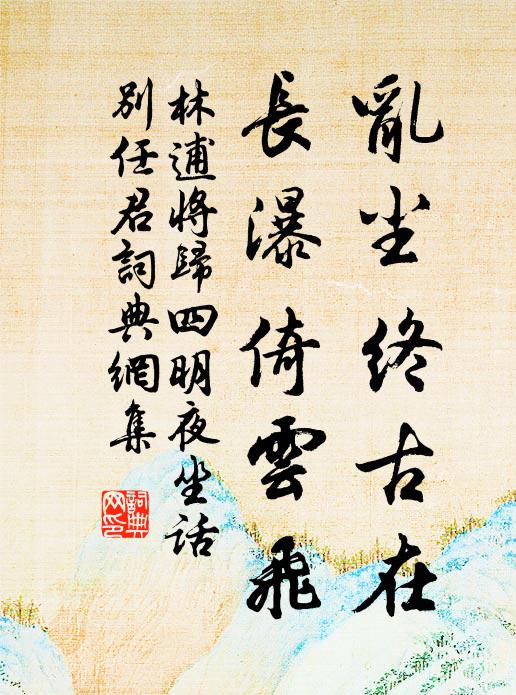 亂尘終古在
長瀑倚雲飛
林逋將歸四明夜坐话
別任君詞典網集
詞典
网印